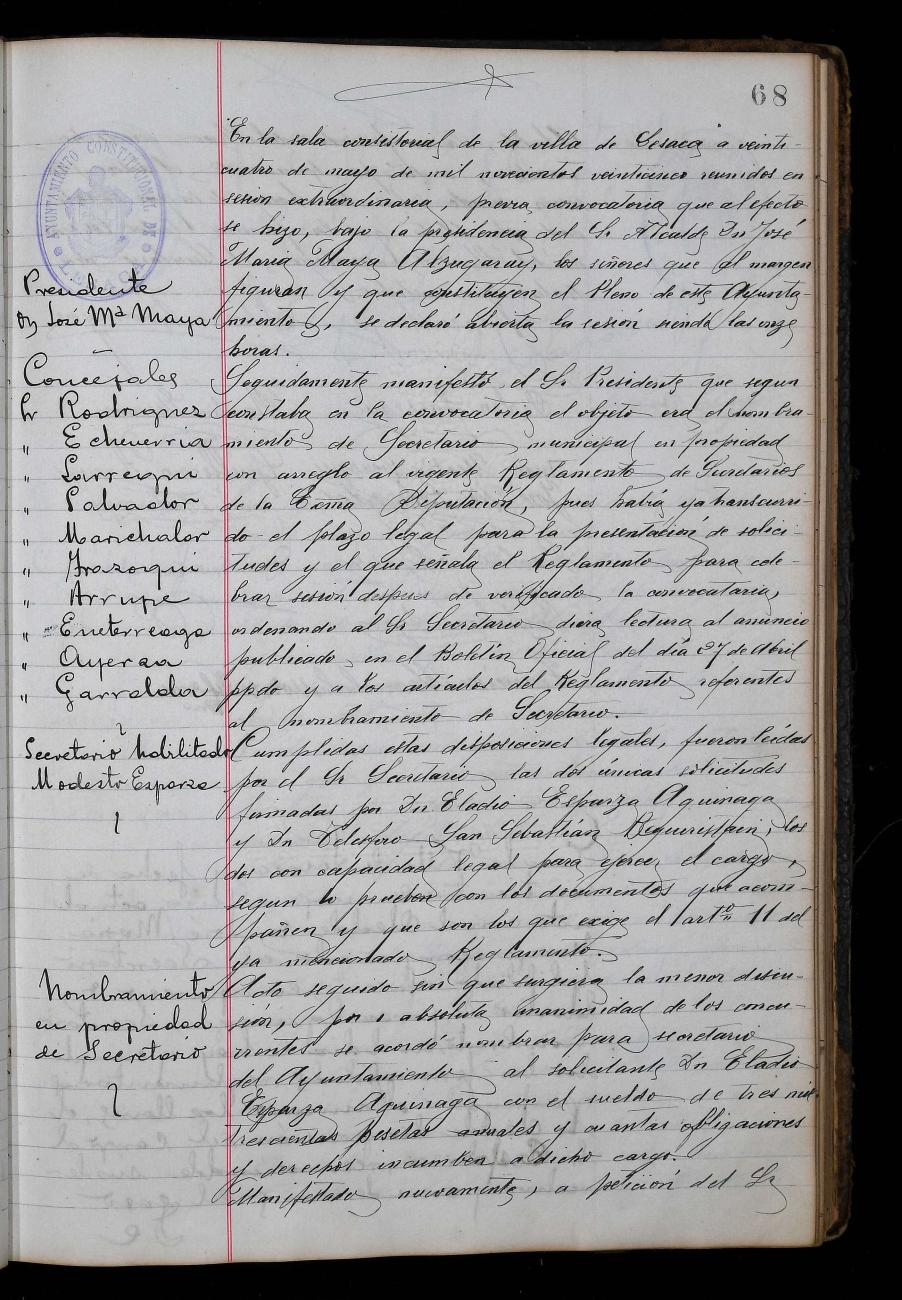 68
AYUNTAMIENTO CONSTITUCIONAL DE
LESACA
En la sala consistorial de la villa de Lesaca a veinti-
cuatro de mayo de mil novecientos veinticinco reunidos en
sesión extraordinaria, previa convocatoria que al efecto
se hizo, bajo la presidencia del Sr Alcalde Dn José
Maria Maya Alzugaray, los señores que al margen
figuran y que constituyen el Pleno de este Ayunta-
miento, se declaró abierta la sesión siendo las onze
horas.
Presidente
Dn José Mª Maya
Concejales
Sr Rodriguez
" Echeverria
" Larregui
" Salvador
" Marichalar
" Irazoqui
" Arrupe
" Eneterreaga
" Ayerza
" Garralda
Secretario habilitado
Modesto Esparza
Seguidamente manifestó el Sr Presidente que segun
constaba en la convocatoria el objeto era el nombra-
miento de Secretario municipal en propiedad
con arreglo al vigente Reglamento de Secretarios
de la Excma Diputación, pues había ya transcurri-
do el plazo legal para la presentación de solici-
tudes y el que señala el Reglamento para cele-
brar sesión despues de verificado la convocatoria,
ordenando al Sr Secretario diera lectura al anuncio
publicado en el Boletín Oficial del día 27 de Abril
ppdo y a los artículos del Reglamento referentes
al nombramiento de Secretario.
Cumplidas estas disposiciones legales, fueron leídas
por el Sr Secretario las dos únicas solicitudes
firmadas por Dn Eladio Esparza Aguinaga
y Dn Telesforo San Sebastián Reguiristain, los
dos con capacidad legal para ejercer el cargo,
segun lo prueben con los documentos que acom-
pañen y que son los que exige el artº 11 del
ya mencionado Reglamento.
Nombramiento
en propiedad
de Secretario
Acto seguido sin que surgiera la menor discu-
sión, por absoluta unanimidad de los concu-
rrentes se acordó nombrar para secretario
del Ayuntamiento al solicitante Dn Eladio
Esparza Aguinaga con el sueldo de tres mil
trescientas pesetas anuales y cuantas obligaciones
y derechos incumben a dicho cargo.
Manifestado nuevamente, a petición del Sr